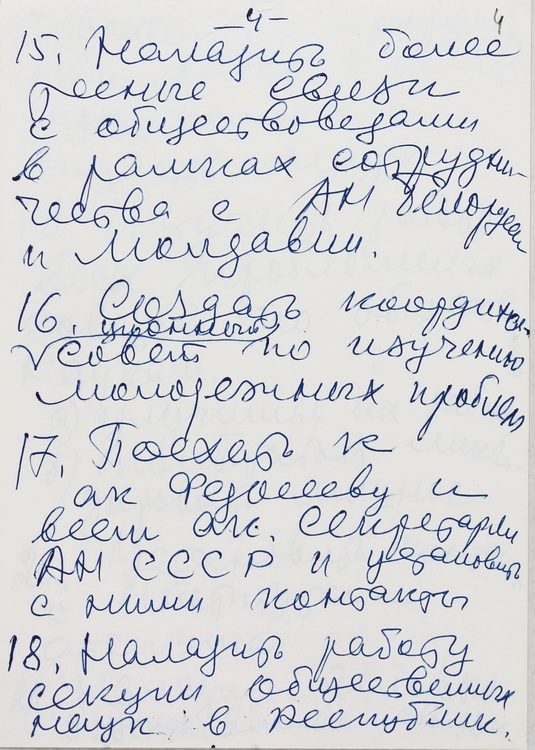 -4-
4
15. Наладить более
тесные связи
с обществоведами
в рамках сотрудни-
чества с АН Белорусси
и Молдавии.
16. Создать координа-
ционный
совет по изучению
молодежных проблем
17. Поехать к
ак Федосееву и
всем ак. секретарям
АН СССР и установить
с ними контакты
18. Наладить работу
секции общественных
наук в республик.